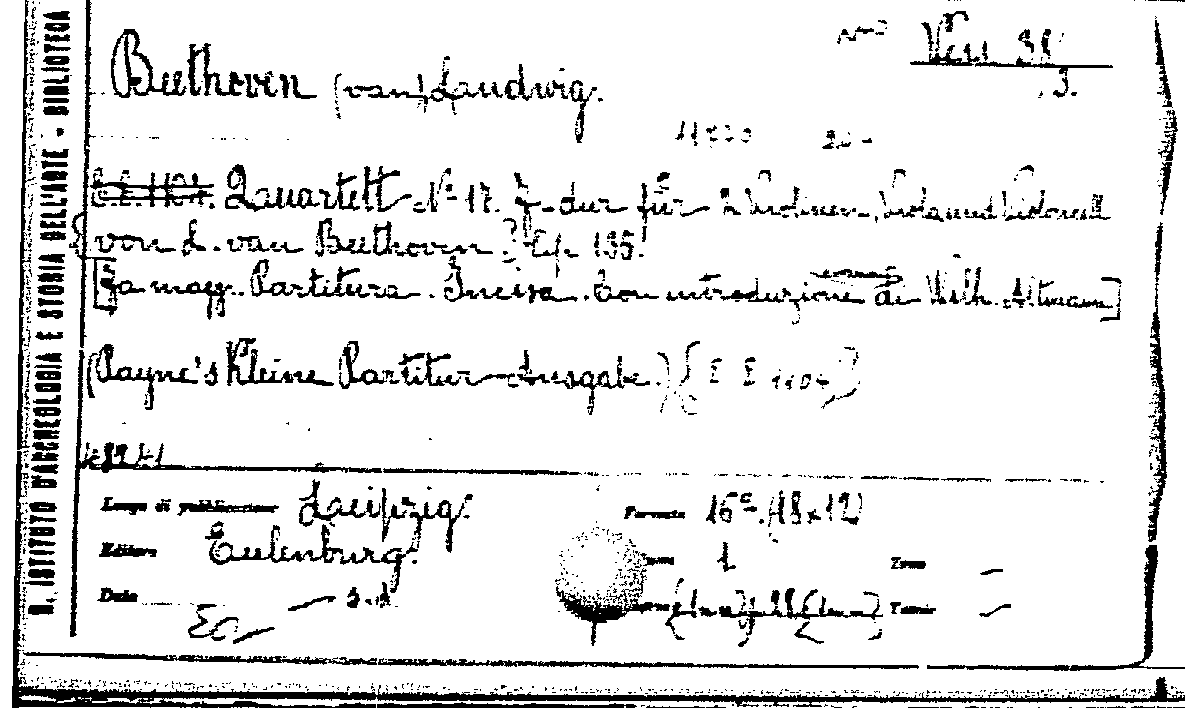 R. ISTITUTO D'ARCHEOLOGIA E STORIA DELL'ARTE - BIBLIOTECA
Vess 38
3.
Beethoven (van) Laudwig.
E.E. 1104. Quartett Nº 17. F-dur für 2 Violinen, Viola und Violoncell
von L. van Beethoven Op. 135.
[Fa magg. Partitura. Incisa. Con introduzione di Wilh. Altmann]
(Payne's Kleine Partitur-Ausgabe.) [E E 1104]
Luogo di pubblicazione Leipzig. Formato 16º. (18x12)
Editore Eulenburg. 1 Tomo —
Data — s.d. Tavole —